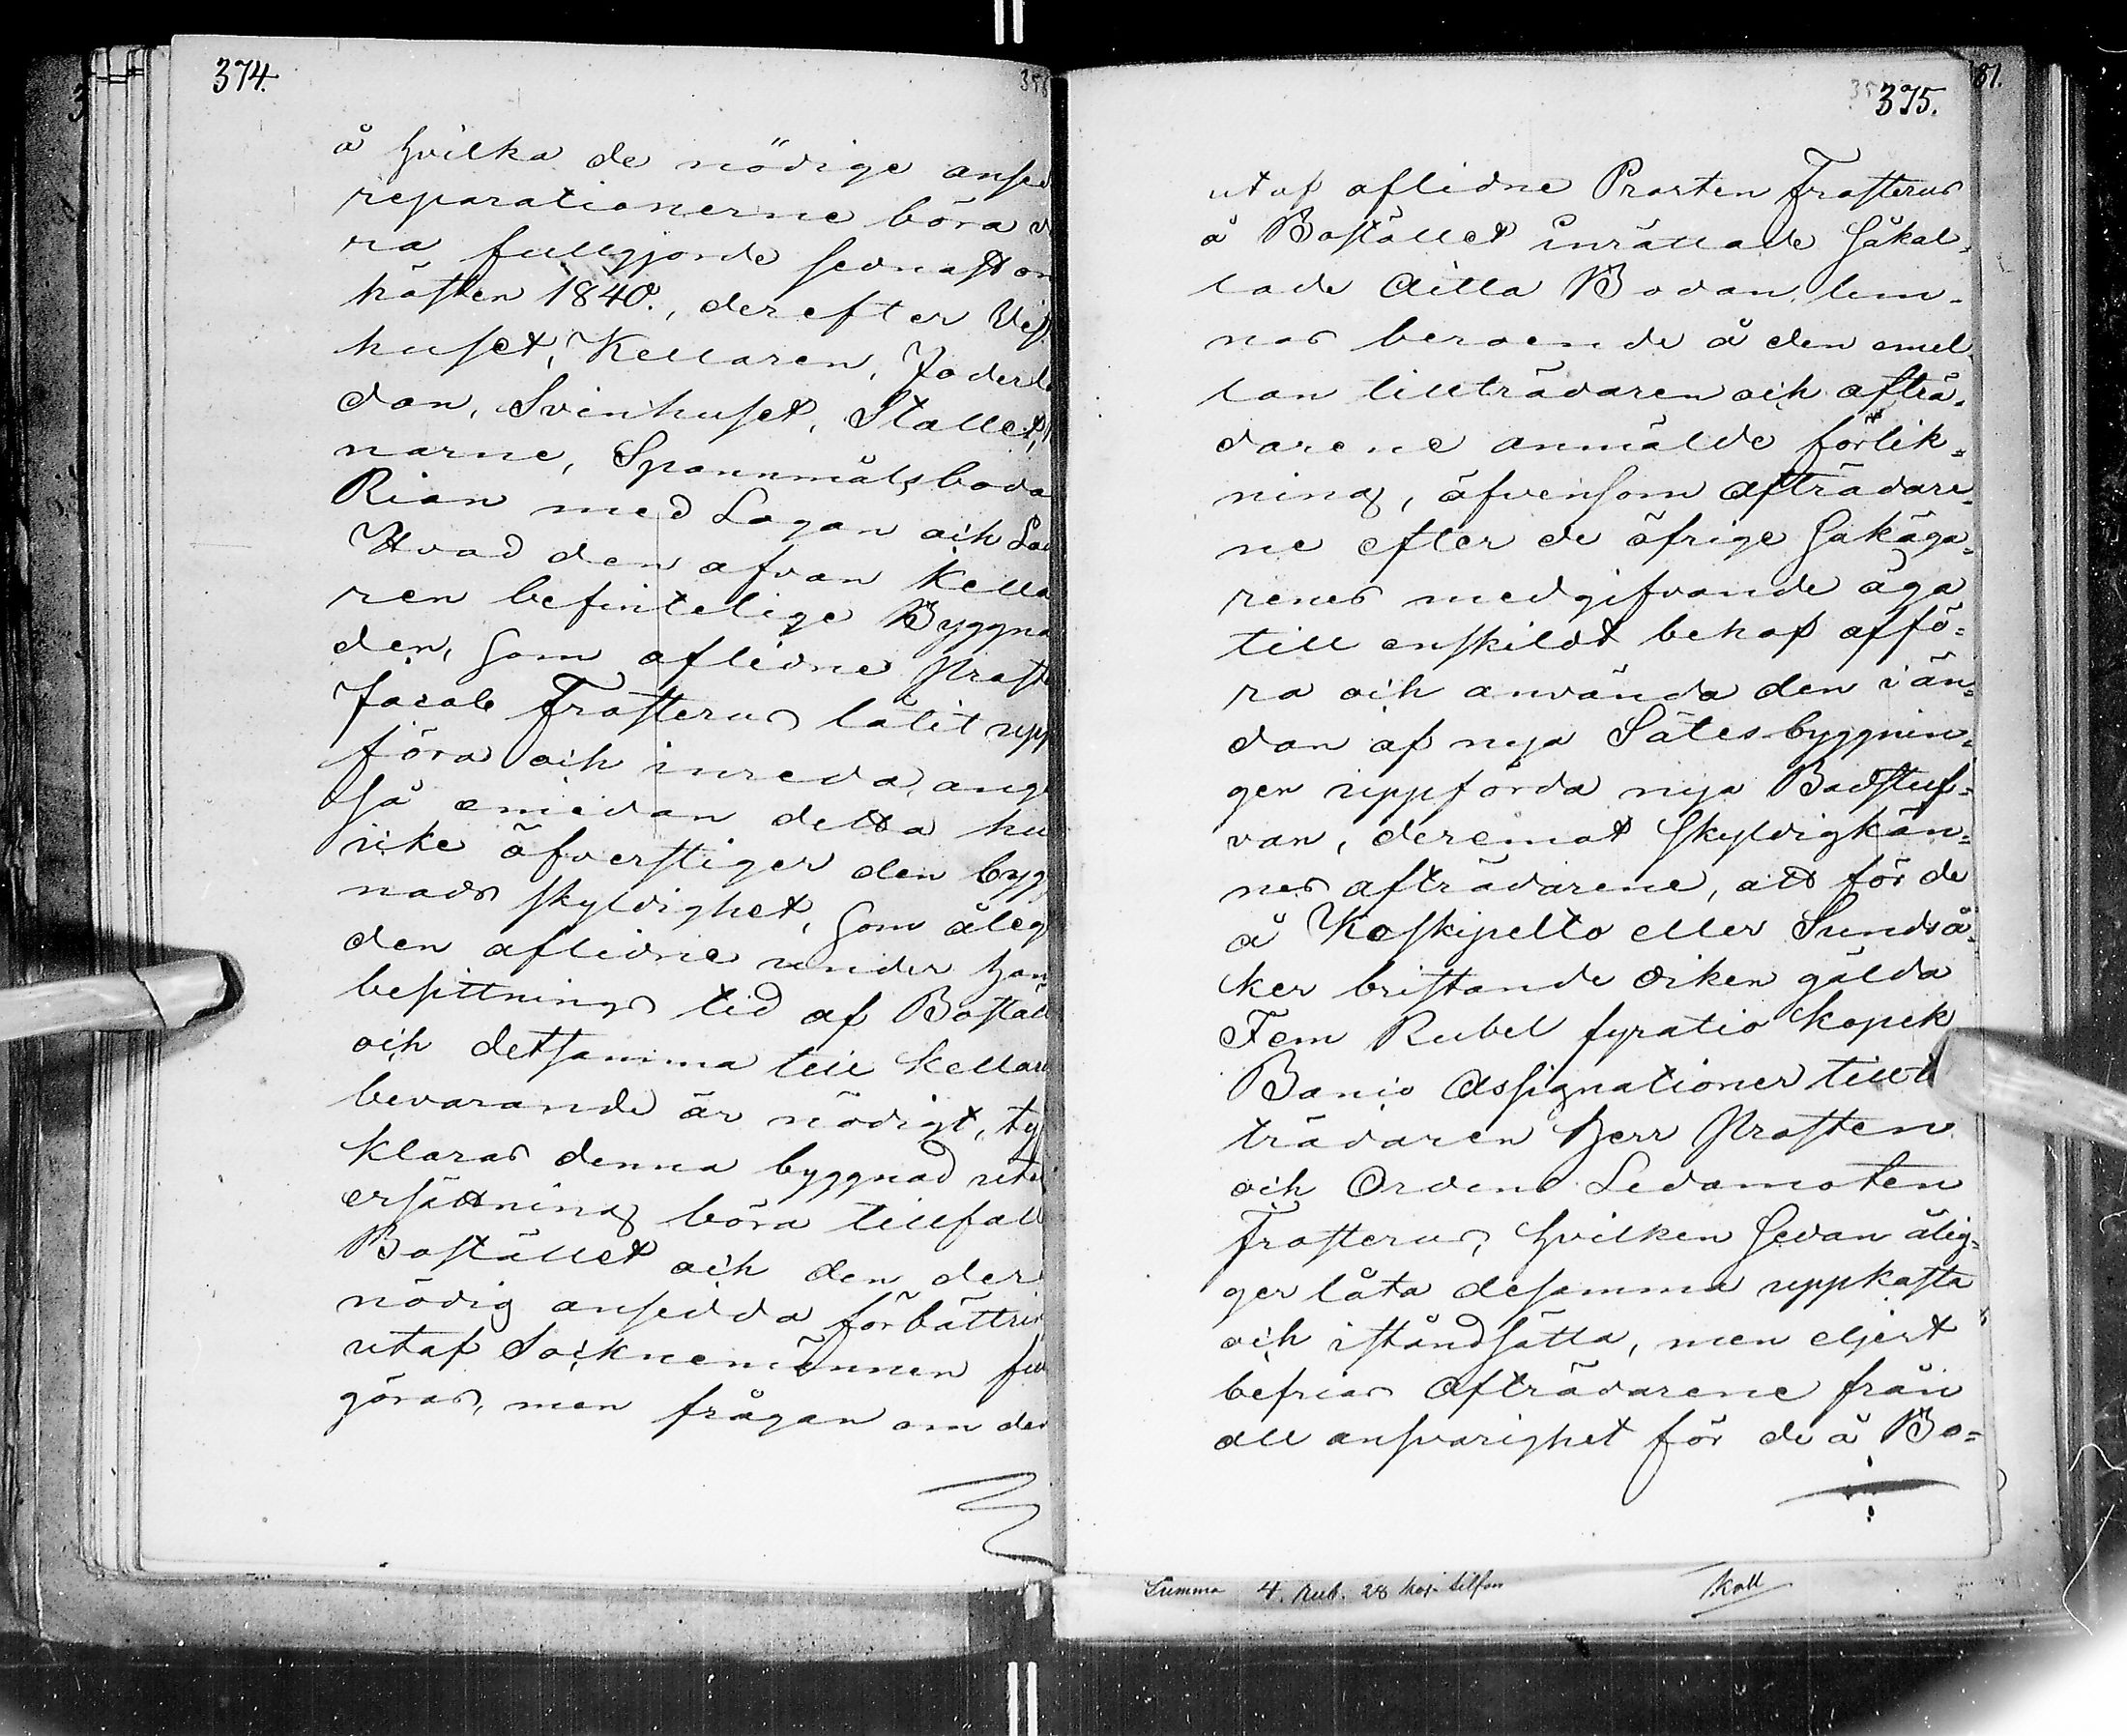 374.
å hvilka de nödige ansed
reparationerne böra v
ra fullgjorde sednast om
hösten 1840., derefter
huset, Kellaren, Foderla
dan, Svinhuset, Stallet,
narne, Spannmålsboda
Rian med Logan och La
Hvad den ofvan Kella
ren befintelige Byggna
den, som aflidne Prost
Jacob Frosterus låtit upp
föra och inreda, ang
så emedan detta hu
icke öfverstiger den byg
nads skyldighet, som åleg
den aflidne under han
besittnings tid af Bostäl
och detsamma till Kellare
bevarande är nödigt, ty
klaras denna byggnad uta
ersättning böra tillfall
Bostället och den der
nödig ansedda förbättrin
utaf Socknemännen ful
göras, men frågan om den
375.
utaf aflidne Prosten Frosterus
å Bostället inrättade såkal=
lade Aitta Bodan, lem=
nas beroende å den emel=
lan tillträdaren och afträ=
darene anmälde förlik=
ning, äfvensom Afträdare=
ne efter de öfrige sakäga=
renes medgifvande äga
till enskildt behof afför=
ra och använda den i än=
dan af nya Sätesbyggnin=
gen uppförda nya Badstuf=
van, deremot skyldigkän=
nes afträdarene, att för de
å Koskipelto eller Sundså=
ker bristande diken gälda
Fem Rubel fyratio kopek
Banco Assignationer till t
trädaren Herr Prosten
och Ordens Ledamoten
Frosterus, hvilken sedan ålig=
ger låta desamma uppkasta
och iståndsätta, men eljest
befrias Afträdarene från
all ansvarighet för de å Bo=
Summa 4. Rub. 28 kop. silfver
Koll